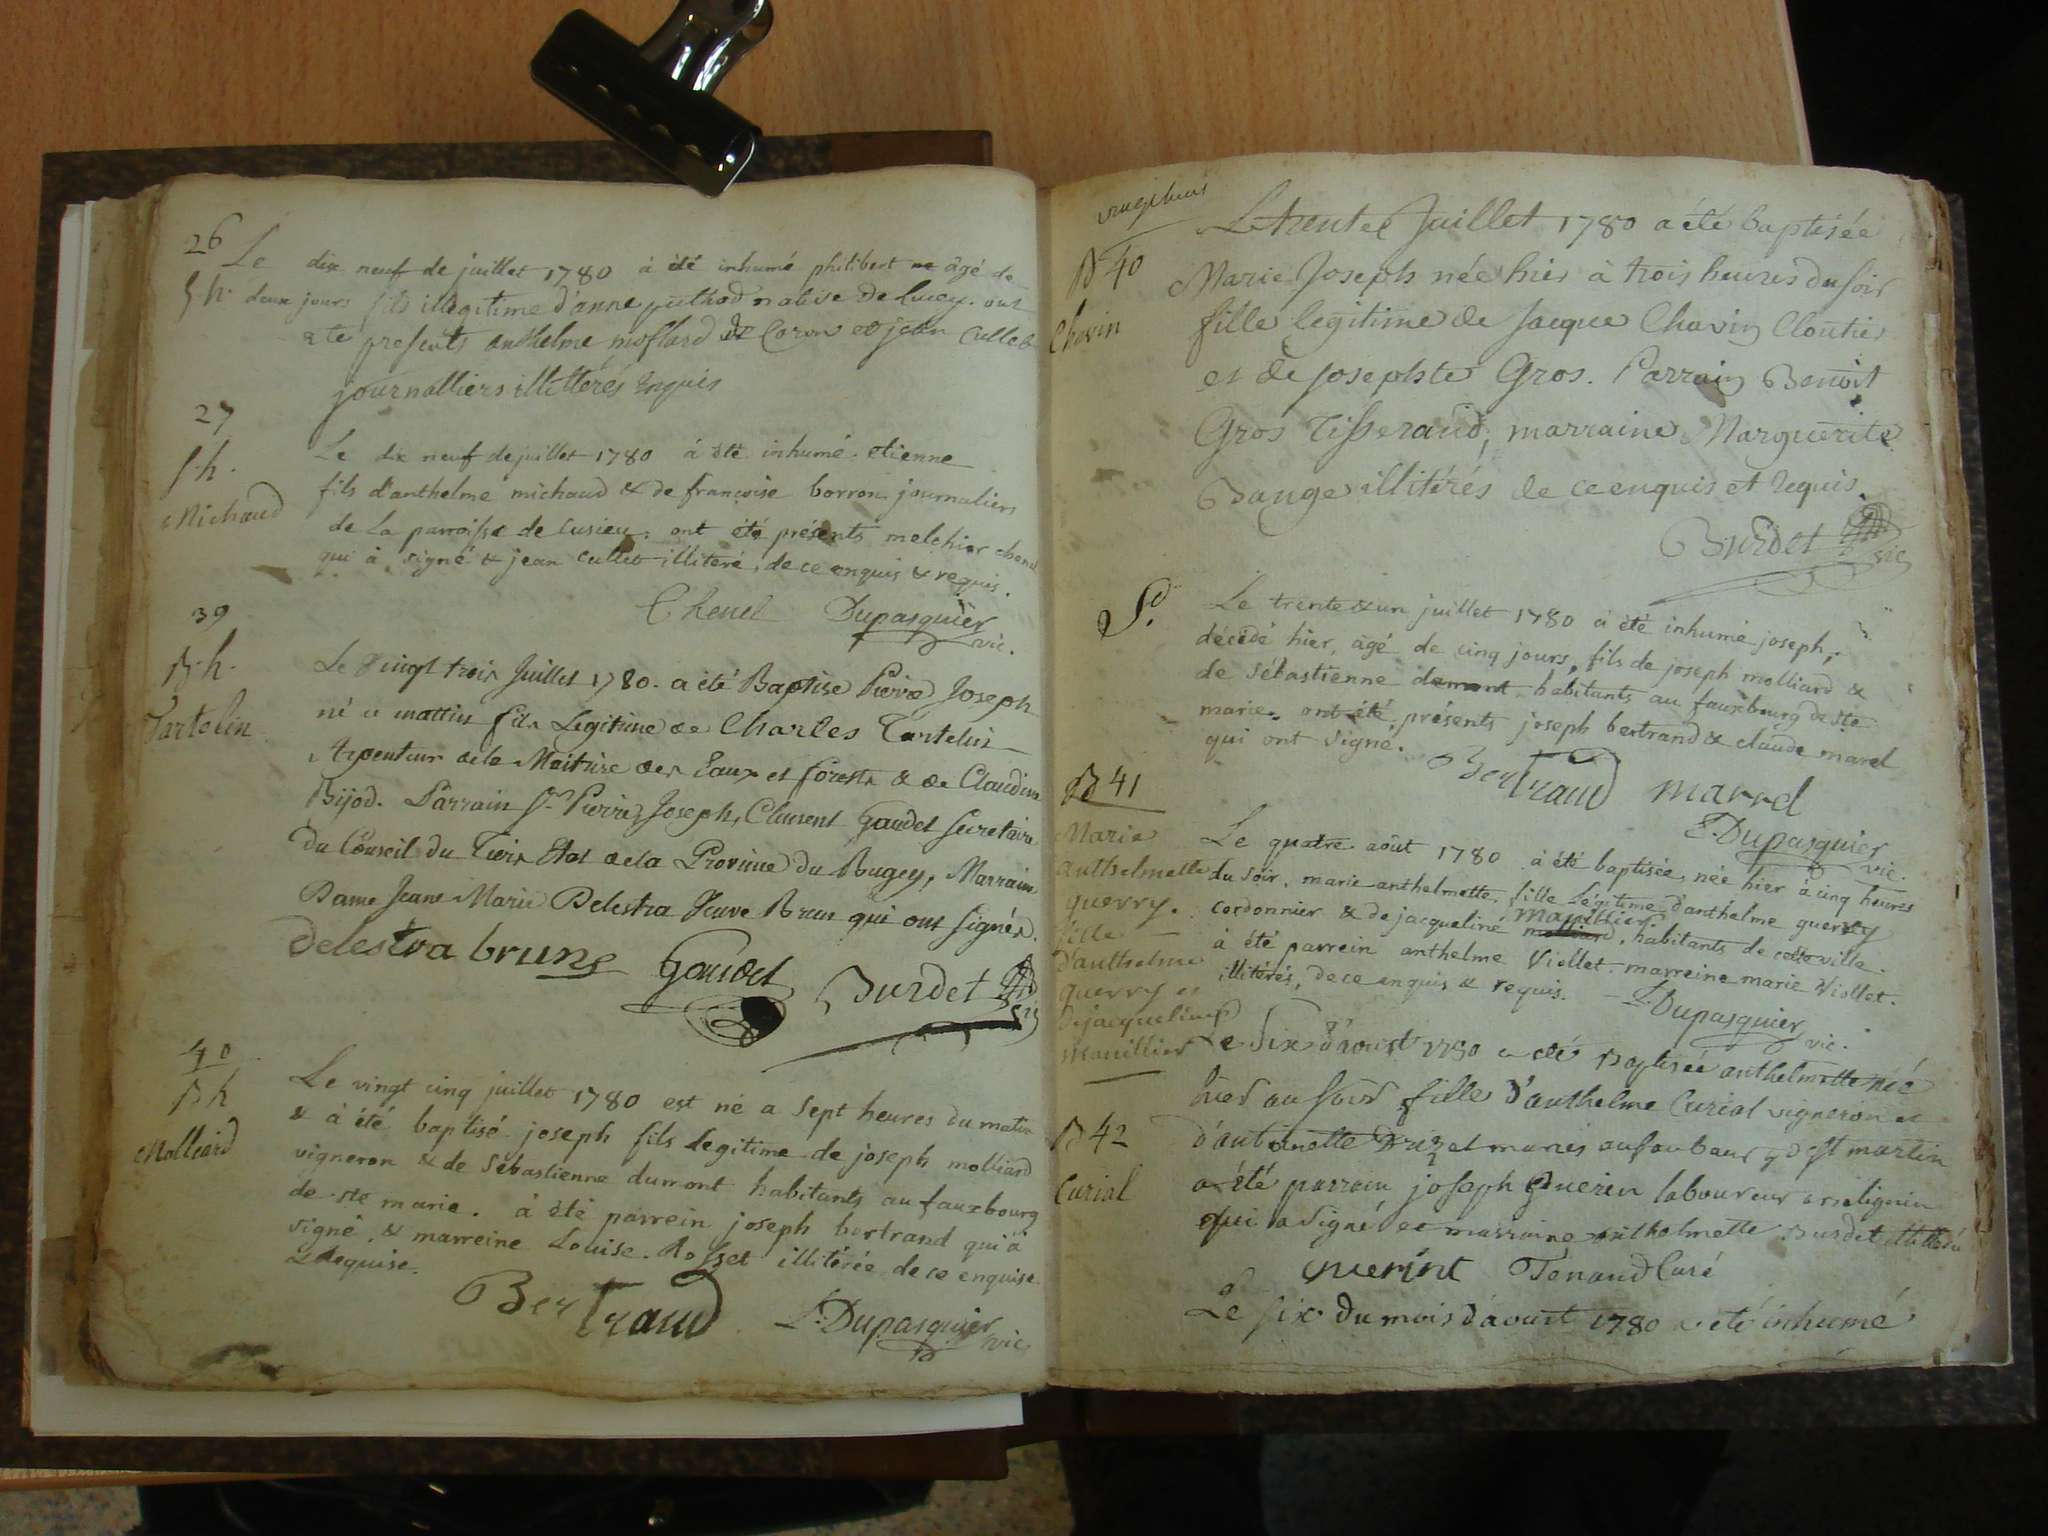 26
Le dix neuf de juillet 1780 à été inhumé philibert âgé de
S. h. deux jours fils illegitime d'anne puthod native de Lucey. ont
ete presents anthelme moflard de Coron et jean Cullet
journalliers illitterés enquis
27
S. h.
Michaud
Le dix neuf de juillet 1780 à été inhumé etienne
fils d'anthelme michaud & de françoise borron journaliers
de La parroisse de Cusieu, ont été présents melchior chenel
qui à signé & jean Cullet illiteré, de ce enquis & requis.
Chenel Dupasquier
vic.
39
B. h.
Tartelin
Le Vingt trois Juillet 1780. a été Baptisé Pierre Joseph
né ce mattin fils Legitime de Charles Tartelin
Arpenteur de la Maitrise des Eaux et forests & de Claudine
Bijod. Parrain Sr. Pierre, Joseph, Clement Gaudet Secretaire
du Conseil du Tiers Etat de la Province du Bugey, Marraine
Dame Jeane Marie Delestra Veuve Brun qui ont Signés.
delestra brune Gaudet Burdet
vic
40
B h
Molliard
Le vingt cinq juillet 1780 est né a Sept heures du matin
& à été baptisé joseph fils legitime de joseph molliard
vigneron & de Sébastienne dumont habitants au fauxbourg
de ste marie. à été parrein joseph bertrand qui à
signé, & marreine Louise Rosset illitérée de ce enquise
& requise.
Bertraud L. Dupasquier
vic
B 40
Chavin
Le trente Juillet 1780 a été baptisée
Marie Joseph née hier à trois heures du soir
fille legitime de Jacque Chavin Cloutier
et de Josephte Gros. Parrain Benoit
Gros Tisserand, marraine Marguerite
Dange illitérés de ce enquis et requis.
Burdet
vic
Sd.
Le trente & un juillet 1780 à été inhumé joseph,
décédé hier, âgé de cinq jours, fils de joseph molliard &
de Sébastienne demont habitants au fauxbourg de ste
marie. ont été présents joseph bertrand & claude marel
qui ont signé.
Bertraud marrel
L. Dupasquier
vic.
B 41
Marie
anthelmette
guerry.
fille
d'anthelme
guerry et
de jacqueline
Mauillier
Le quatre août 1780 à été baptisée, née hier à cinq heures
du soir, marie anthelmette, fille Légitime d'anthelme guerry
cordonnier & de jacqueline mauillier, habitants de cette ville.
à été parrein anthelme Viollet. marreine marie Viollet.
illitérés, de ce enquis & requis. L. Dupasquier
vic.
Le Six d'aoust 1780 a été Baptisée anthelmette née
hier au soir fille d'anthelme Curial vigneron et
B 42
Curial
d'antoinette Drizet mariés au faubourg de St martin
a été parrain joseph Guerin laboureur
qui a signé et marraine anthelmette Burdet
Guerint Tenand Curé
Le six du mois d'aoust 1780 a été inhumé